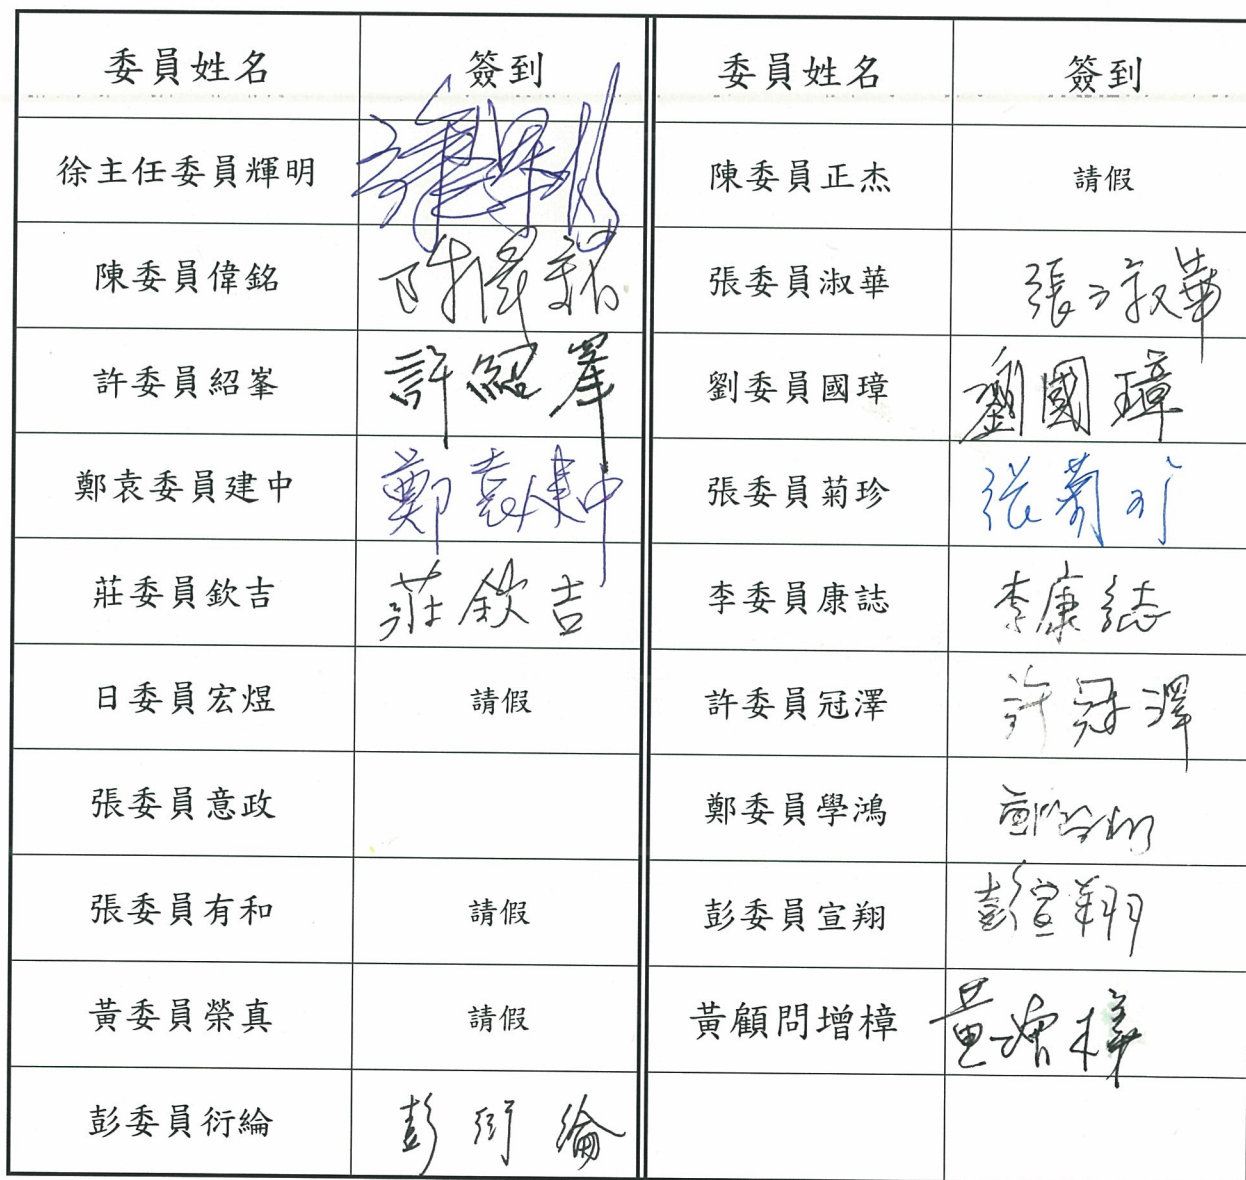 委員姓名 簽到 委員姓名 簽到
徐主任委員輝明 徐輝明 陳委員正杰 請假
陳委員偉銘 陳偉銘 張委員淑華 張淑華
許委員紹峯 許紹峯 劉委員國璋 劉國璋
鄭袁委員建中 鄭袁建中 張委員菊珍 張菊珍
莊委員欽吉 莊欽吉 李委員康誌 李康誌
日委員宏煜 請假 許委員冠澤 許冠澤
張委員意政 鄭委員學鴻 鄭學鴻
張委員有和 請假 彭委員宣翔 彭宣翔
黃委員榮真 請假 黃顧問增樟 黃增樟
彭委員衍綸 彭衍綸